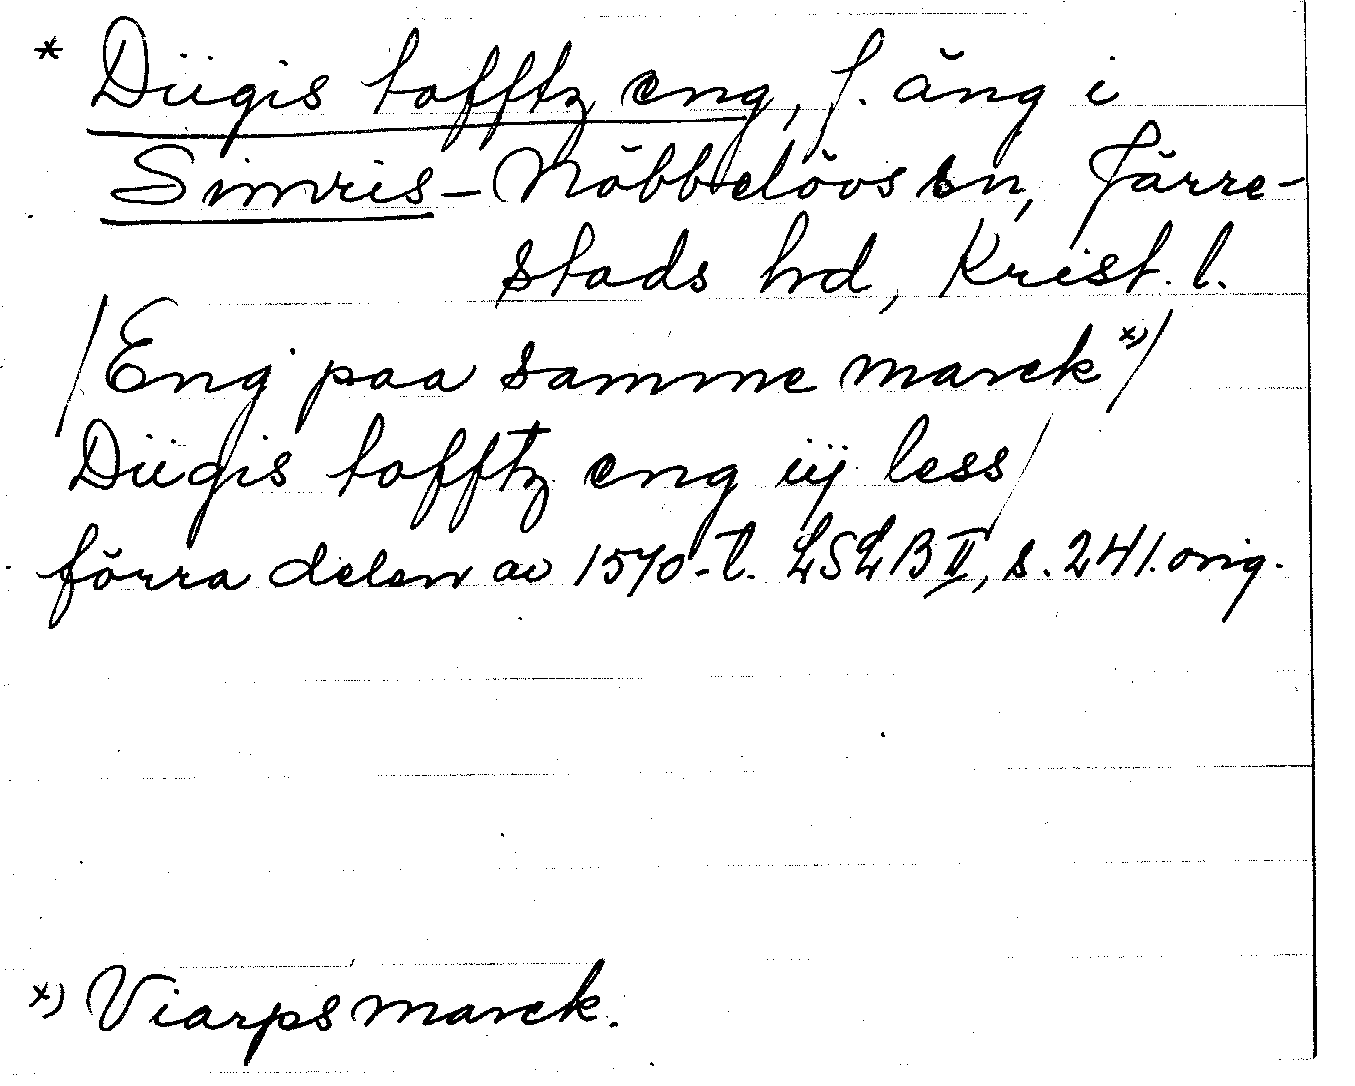 * Diigis tofftz eng, f. äng i
Simris-Nöbbelövs sn, Järre-
stads hd, Krist. l.
/Eng paa samme marck x)/
Diigis tofftz eng iij less/
förra delen av 1570-t. LSLB II, s. 241. orig.
x) Viarps marck.